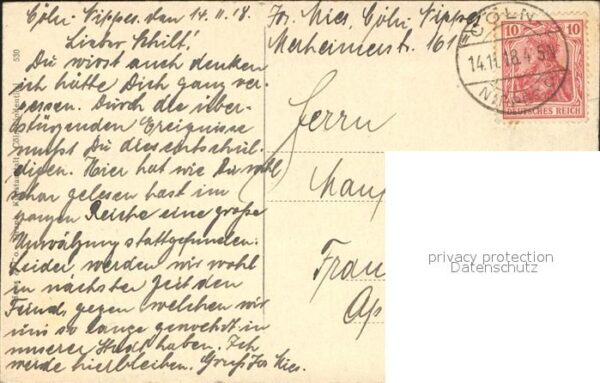 Cöln-Nippes, den 14.11.18.
Lieber Schilt!
Du wirst auch denken
ich hätte Dich ganz ver-
gessen. Durch die über-
stürzenden Ereignisse
mußt Du dies entschul-
digen. Hier hat wie Du wohl
schon gelesen hast im
ganzen Reiche eine große
Umwälzung stattgefunden.
Leider, werden wir wohl
in nächster Zeit den
Feind, gegen welchen wir
uns so lange gewehrt in
unserer Stadt haben. Ich
werde hierbleiben. Gruß Jos Kies.
Jos. Kies, Cöln-Nippes
Merheimerstr. 161
Herrn
Fran
530
CÖLN
14.11.18.4-5
10 10
DEUTSCHES REICH
privacy protection
Datenschutz